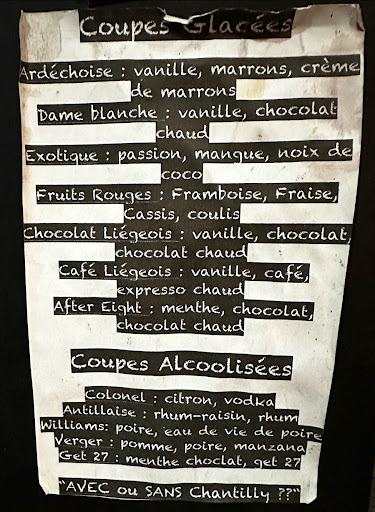 Coupes Glacées
Ardéchoise : vanille, marrons, crème
de marrons
Dame blanche : vanille, chocolat
chaud
Exotique : passion, mangue, noix de
coco
Fruits Rouges : Framboise, Fraise,
Cassis, coulis
Chocolat Liégeois : vanille, chocolat,
chocolat chaud
Café Liégeois : vanille, café,
expresso chaud
After Eight : menthe, chocolat,
chocolat chaud
Coupes Alcoolisées
Colonel : citron, vodka
Antillaise : rhum-raisin, rhum
Williams: poire, eau de vie de poire
Verger : pomme, poire, manzana
Get 27 : menthe choclat, get 27
"AVEC ou SANS Chantilly ??"